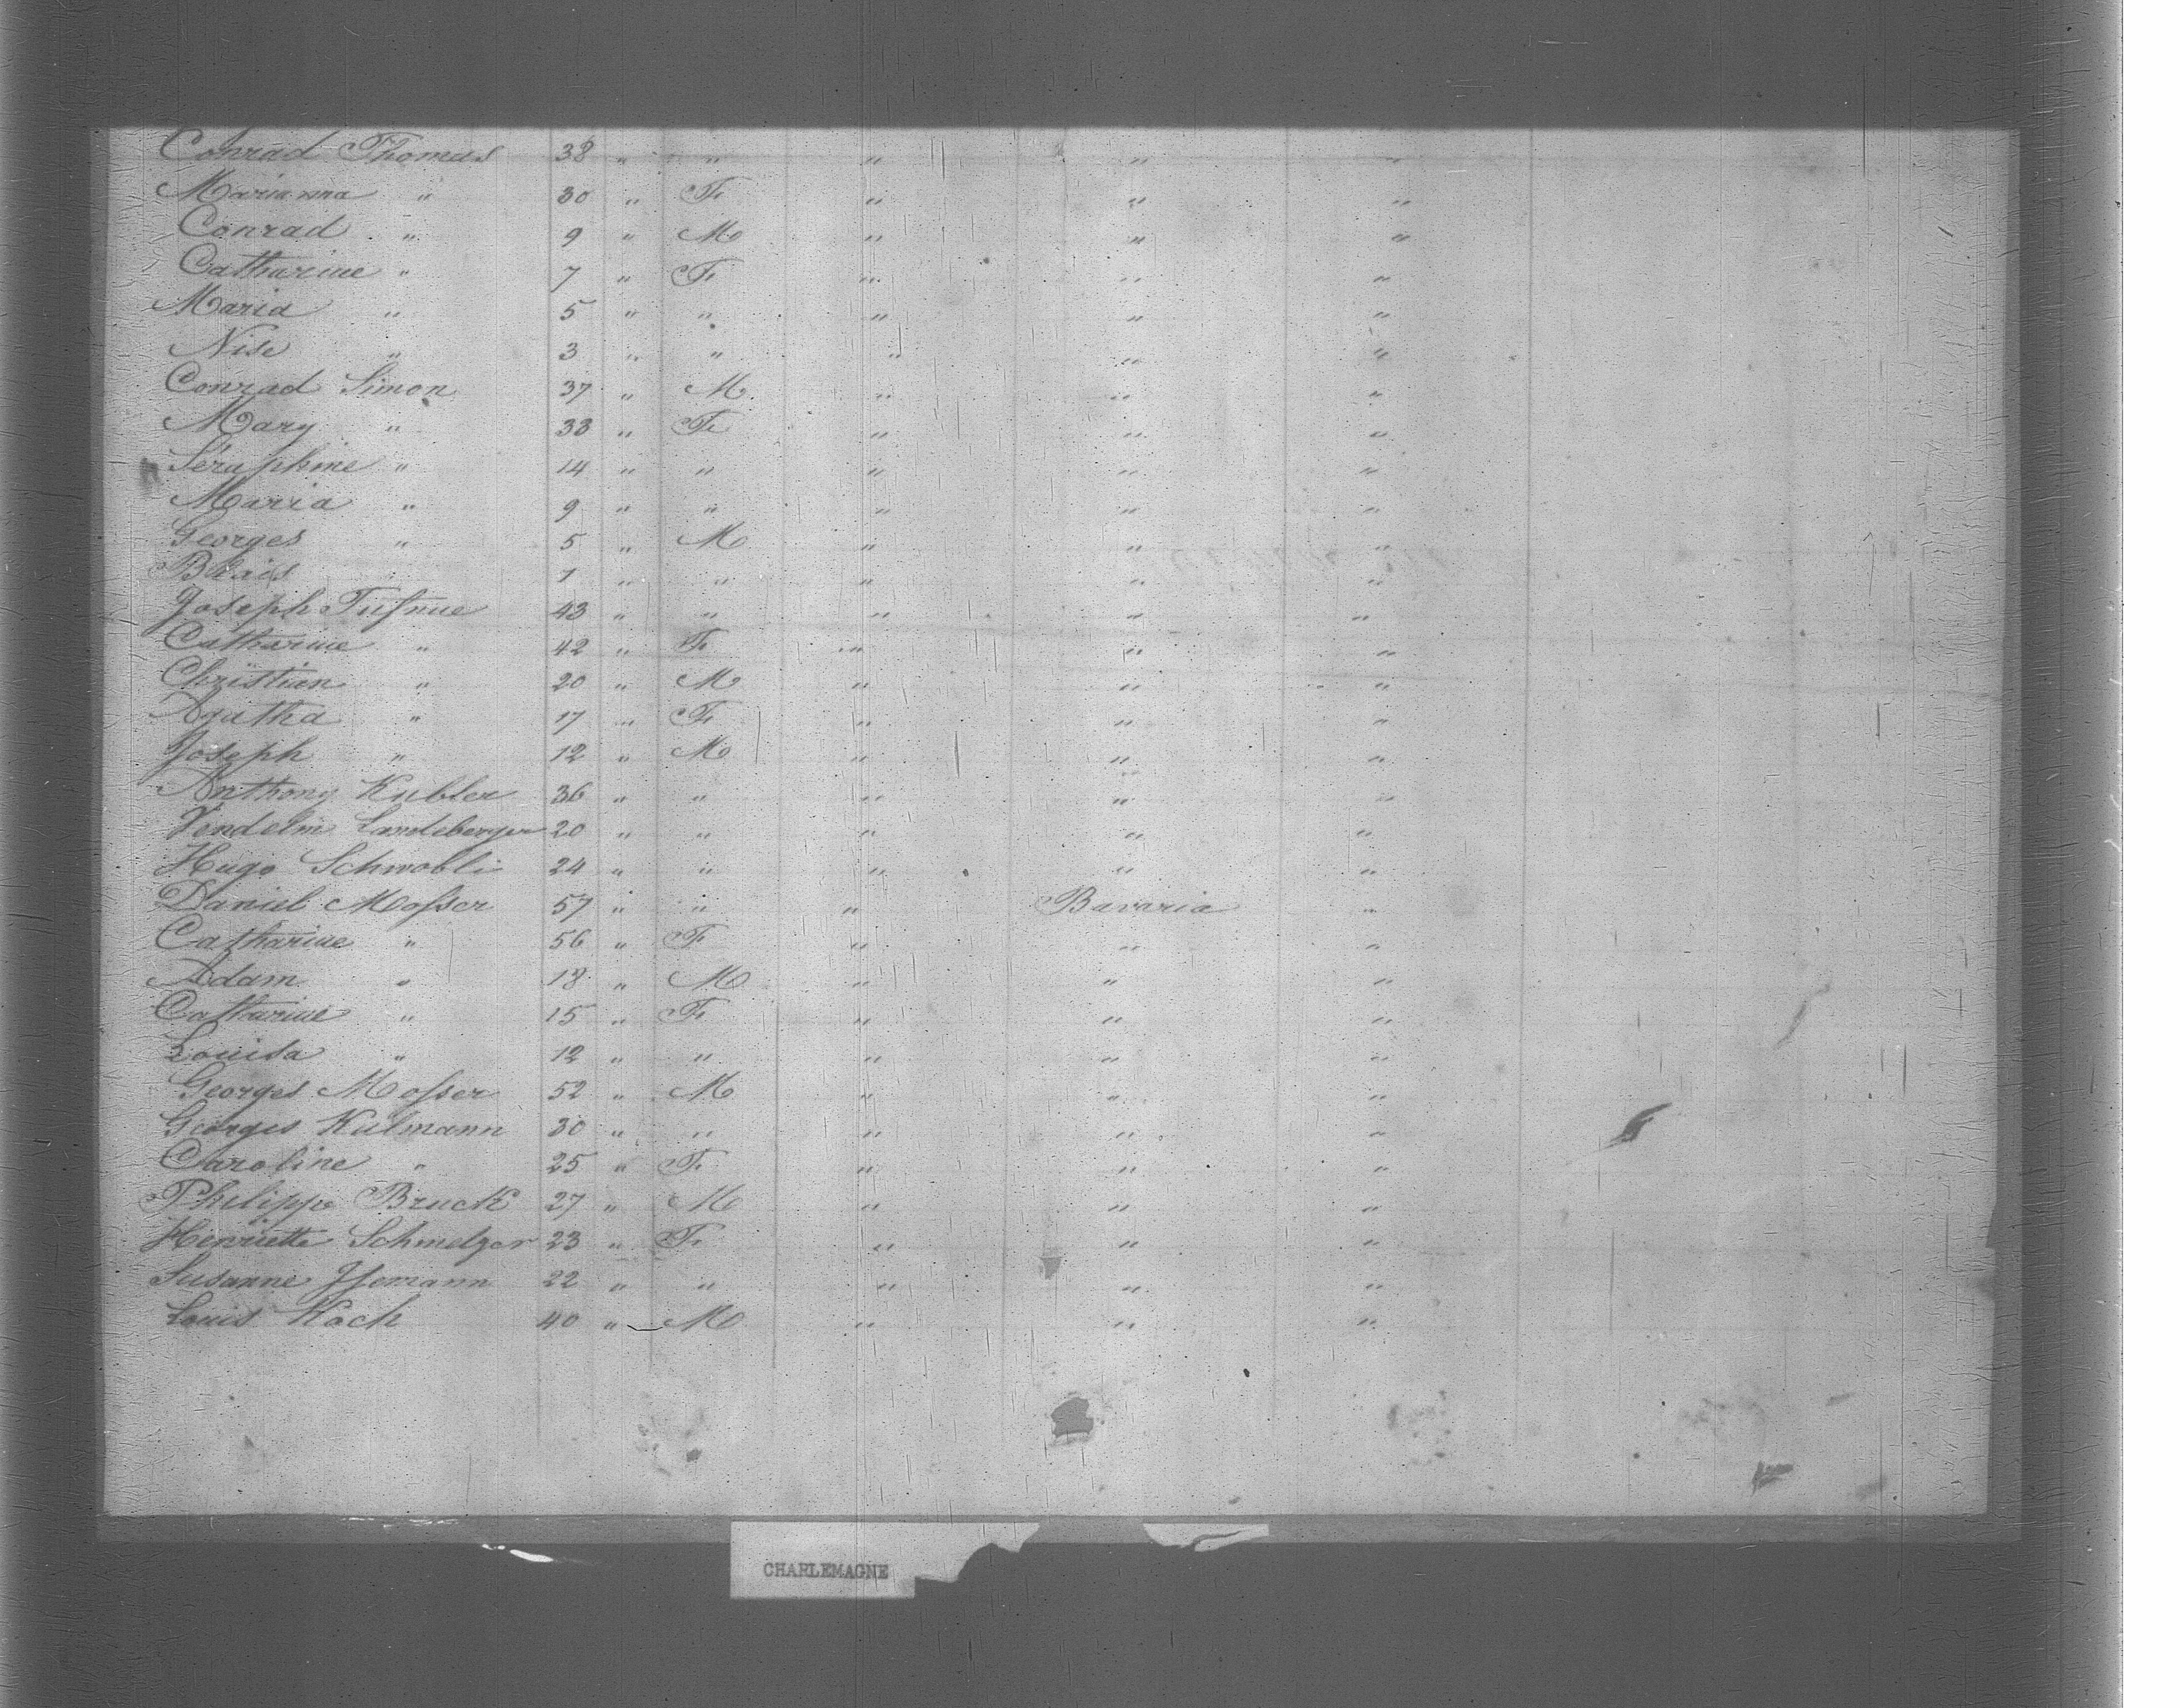 Conrad Thomas 38 " " " " "
Marianna " 30 " F. " " "
Conrad " 9 " M " " "
Catharine " 7 " F. " " "
Maria " 5 " " " " "
Nise " 3 " " " " "
Conrad Simon 37 " M. " " "
Mary " 33 " F. " " "
Séraphine " 14 " " " " "
Maria " 9 " " " " "
Georges " 5 " M " " "
Blais 1 " " " " "
Joseph 43 " " " " "
Catharine " 42 " F. " " "
Christian " 20 " M " " "
Agatha " 17 " F. " " "
Joseph " 12 " M " " "
Anthony Kubler 36 " " " " "
Vendelin Landeberger 20 " " " " "
Hugo Schwobli 24 " " " " "
Daniel Mosser 57 " " " Bavaria "
Catharine " 56 " F. " " "
Adam " 18 " M " " "
Catharine " 15 " F. " " "
Louisa " 12 " " " " "
Georges Mosser 52 " M " " "
Georges Kulmann 30 " " " " "
Caroline " 25 " F. " " "
Philippe Bruck 27 " M " " "
Henriette Schmelzer 23 " F. " " "
Susanne 22 " " " " "
Louis Koch 40 " M " " "
CHARLEMAGNE